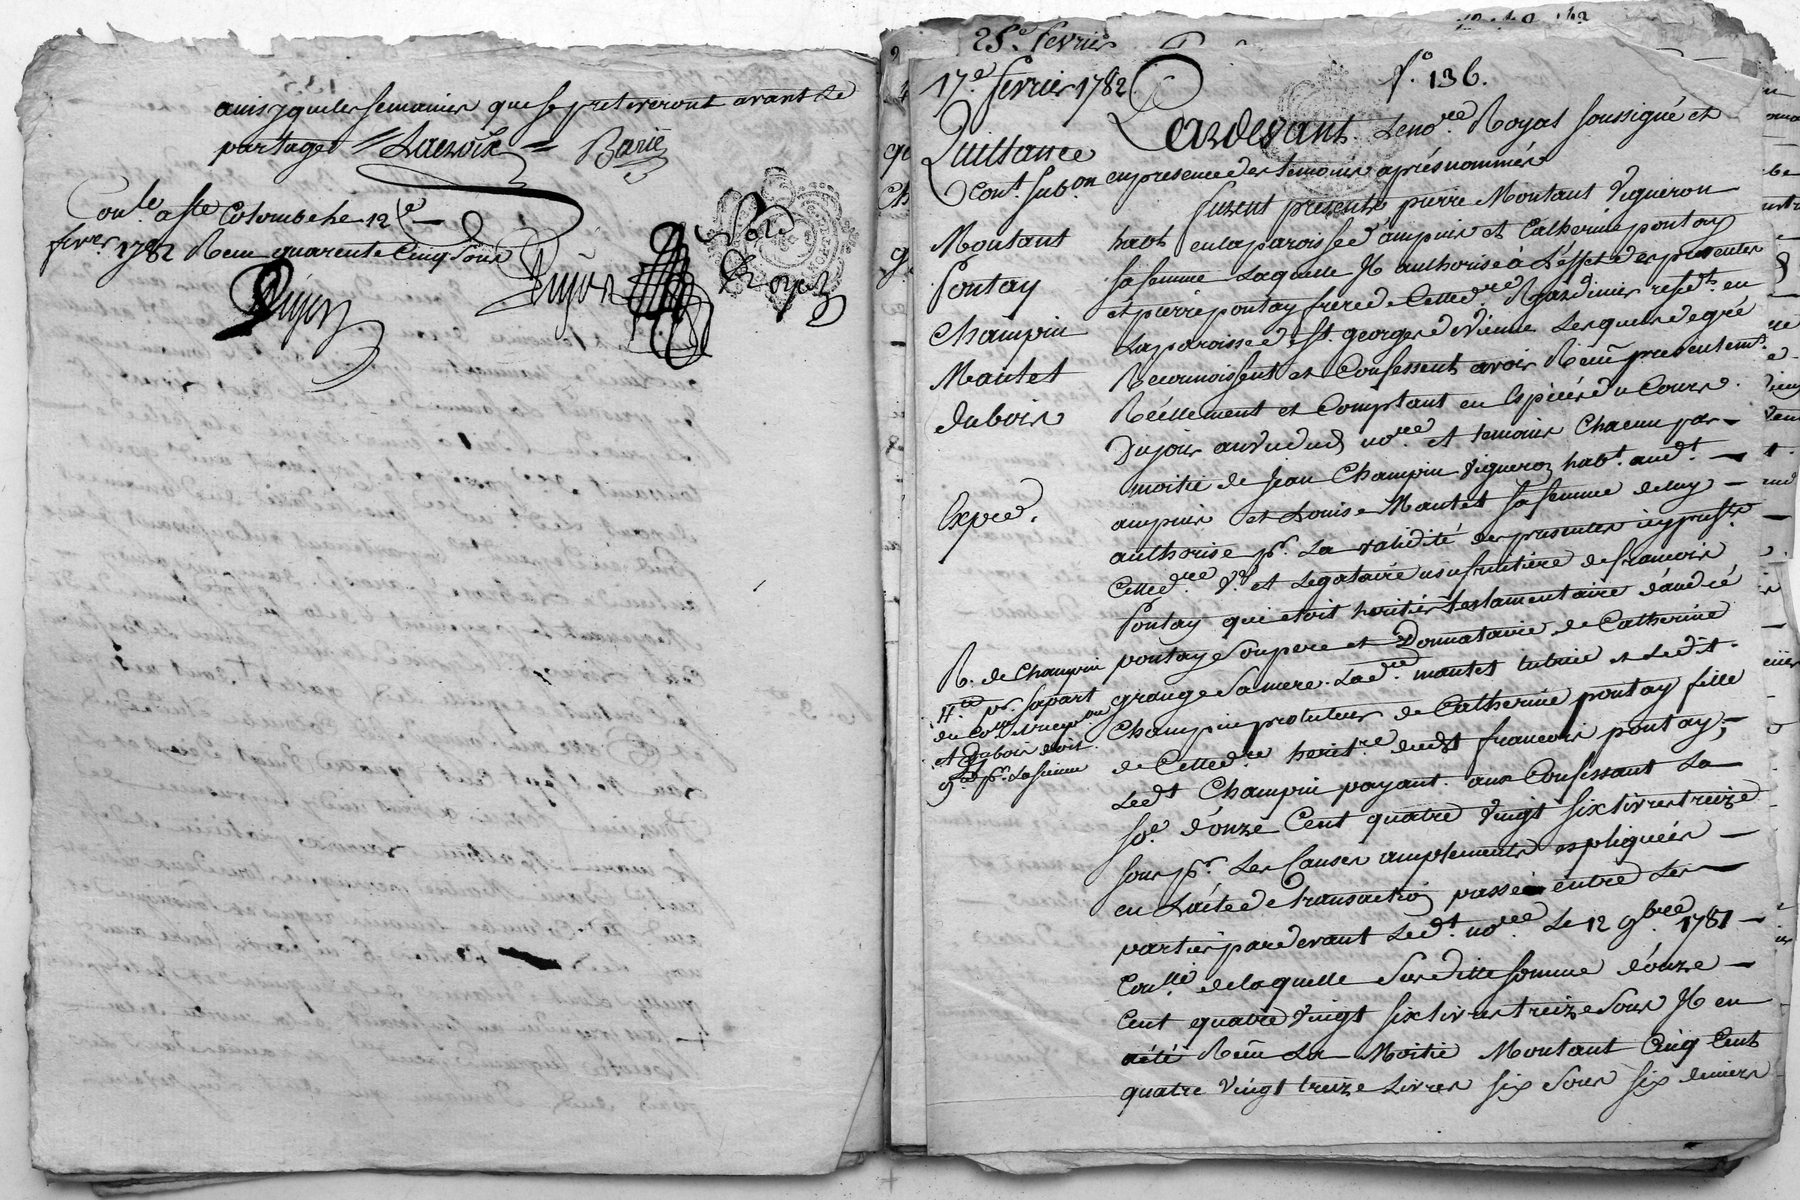 ainsy que les semances que se preleveront avant le
partage // Lacroix = Barie
Con.le a Ste Colombe le 12e
fevrer 1782 Reçu quarente Cinq sous
Dujon
Dujon
No.re
Royal
25.e fevrier
17.e fevrier 1782
N.o 136.
Quittance
cont. subon
Montant
Pontay
Champin
Mantet
dubois
Expée.
R. de Champin
4.# pr. sa part
du Co.le
et dubois doit
9.# pr. La sienne
Pardevant Le no.re Royal soussigné et
en presence des temoins aprés nommés
furent présents pierre Montant Vigneron
habt en la paroisse d'ampuis et Catherine pontay
sa femme Laquelle Il authorise à L'effet des presentes
et pierre pontay frere de Celle d.re Jardinier resid.t en
La paroisse de St. georges de Vienne Lesquels de gré
Reconnoissent et Confessent avoir Reçu presentem.t
Réellement et Comptant en Espèces du Cours
Du jour au vu dud no.re et temoins Chacun par
moitié de Jean Champin Vigneron hab.t aud.t
ampuis et Louise Mantet sa femme de luy
authorise pr. La validité des presentes icy pres.te
Cette d.re V.e et Legataire usufruitiere de francois
Pontay qui etoit heritier testamentaire d'andré
pontay son pere et Donnataire de Catherine
grange sa mere. La d.re mantet tutrice et Ledit
Champin protuteur de Catherine pontay fille
de Cette d.re herit.re dudt francois pontay,
Ledt Champin payant aux Confessant La
so.e d'onze Cent quatre Vingt six livres treize
sous pr. Les Causes amplement expliquées
en L'acte de transaction passée entre Les
parties pardevant Led.t no.re Le 12 9bre 1781
Con.lle de laquelle Susditte somme d'onze
Cent quatre Vingt six livres treize sous Il en
a été Reçu La Moitié Montant Cinq Cent
quatre Vingt treize Livres six sous six deniers